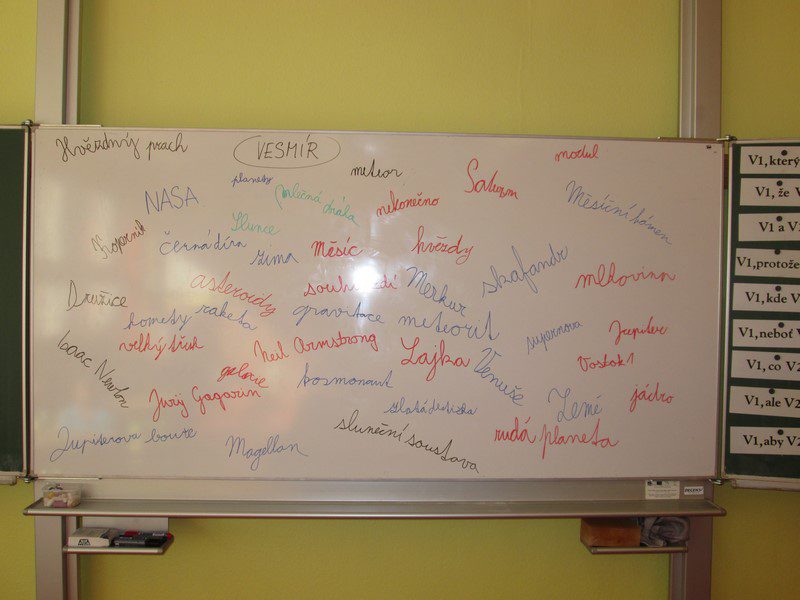 Hvězdný prach
VESMÍR
meteor
modul
planety
Saturn
NASA
mléčná dráha
nekonečno
Měsíční kámen
Slunce
Koperník
černá díra
zima
Měsíc
hvězdy
skafandr
mlhovina
asteroidy
souhvězdí
Merkur
Družice
komety
raketa
gravitace
meteorit
supernova
Jupiter
velký třesk
Neil Armstrong
Lajka
Venuše
Vostok 1
Isaac Newton
galaxie
kosmonaut
Jurij Gagarin
Země
jádro
Jupiterova bouře
Magellan
sluneční soustava
rudá planeta
V1, který
V1, že V
V1 a V
V1, protože
V1, kde V
V1, neboť V
V1, co V2
V1, ale V2
V1, aby V2